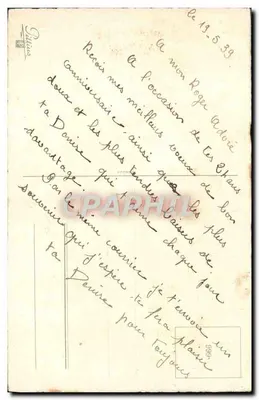 le 19-5-39
A mon Roger adoré
A l'occasion de tes 21 ans
Reçois mes meilleurs voeux de bon
anniversaire ainsi que les plus
doux et les plus tendres baisers de
ta Denise qui t'aime chaque jour
davantage.
Par même courrier je t'envoie un
souvenir qui j'espère te fera plaisir
ta Denise
pour toujours
CPAPHIL.FR